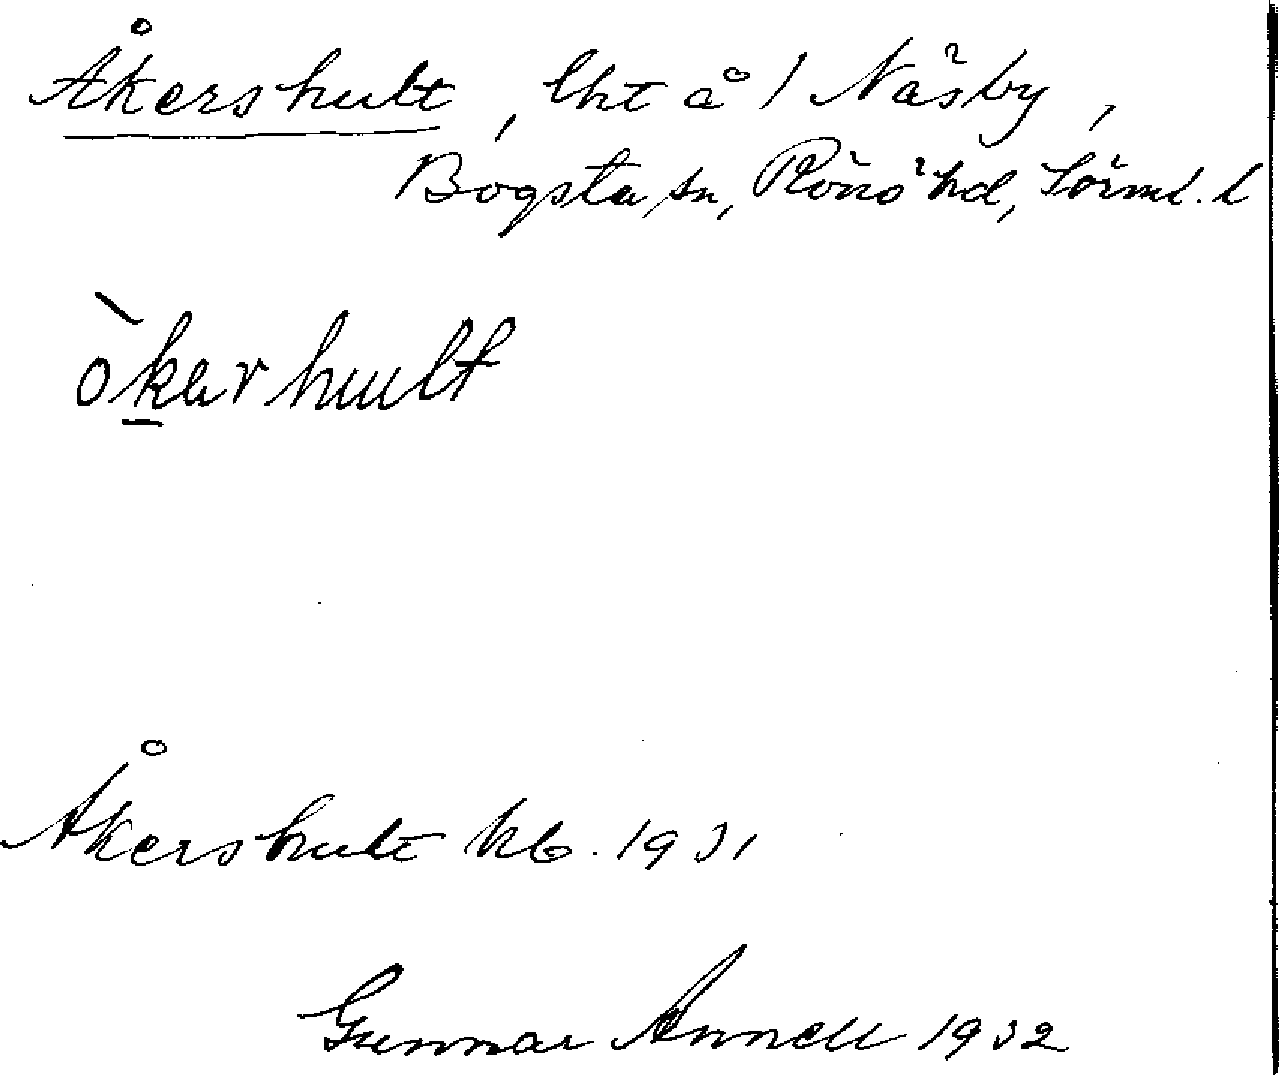 Åkershult, lht å 1 Näsby,
Bogsta sn, Rönö hd, Sörml. l
òkarhult
Åkershult kb. 1931
Gunnar Annell 1932